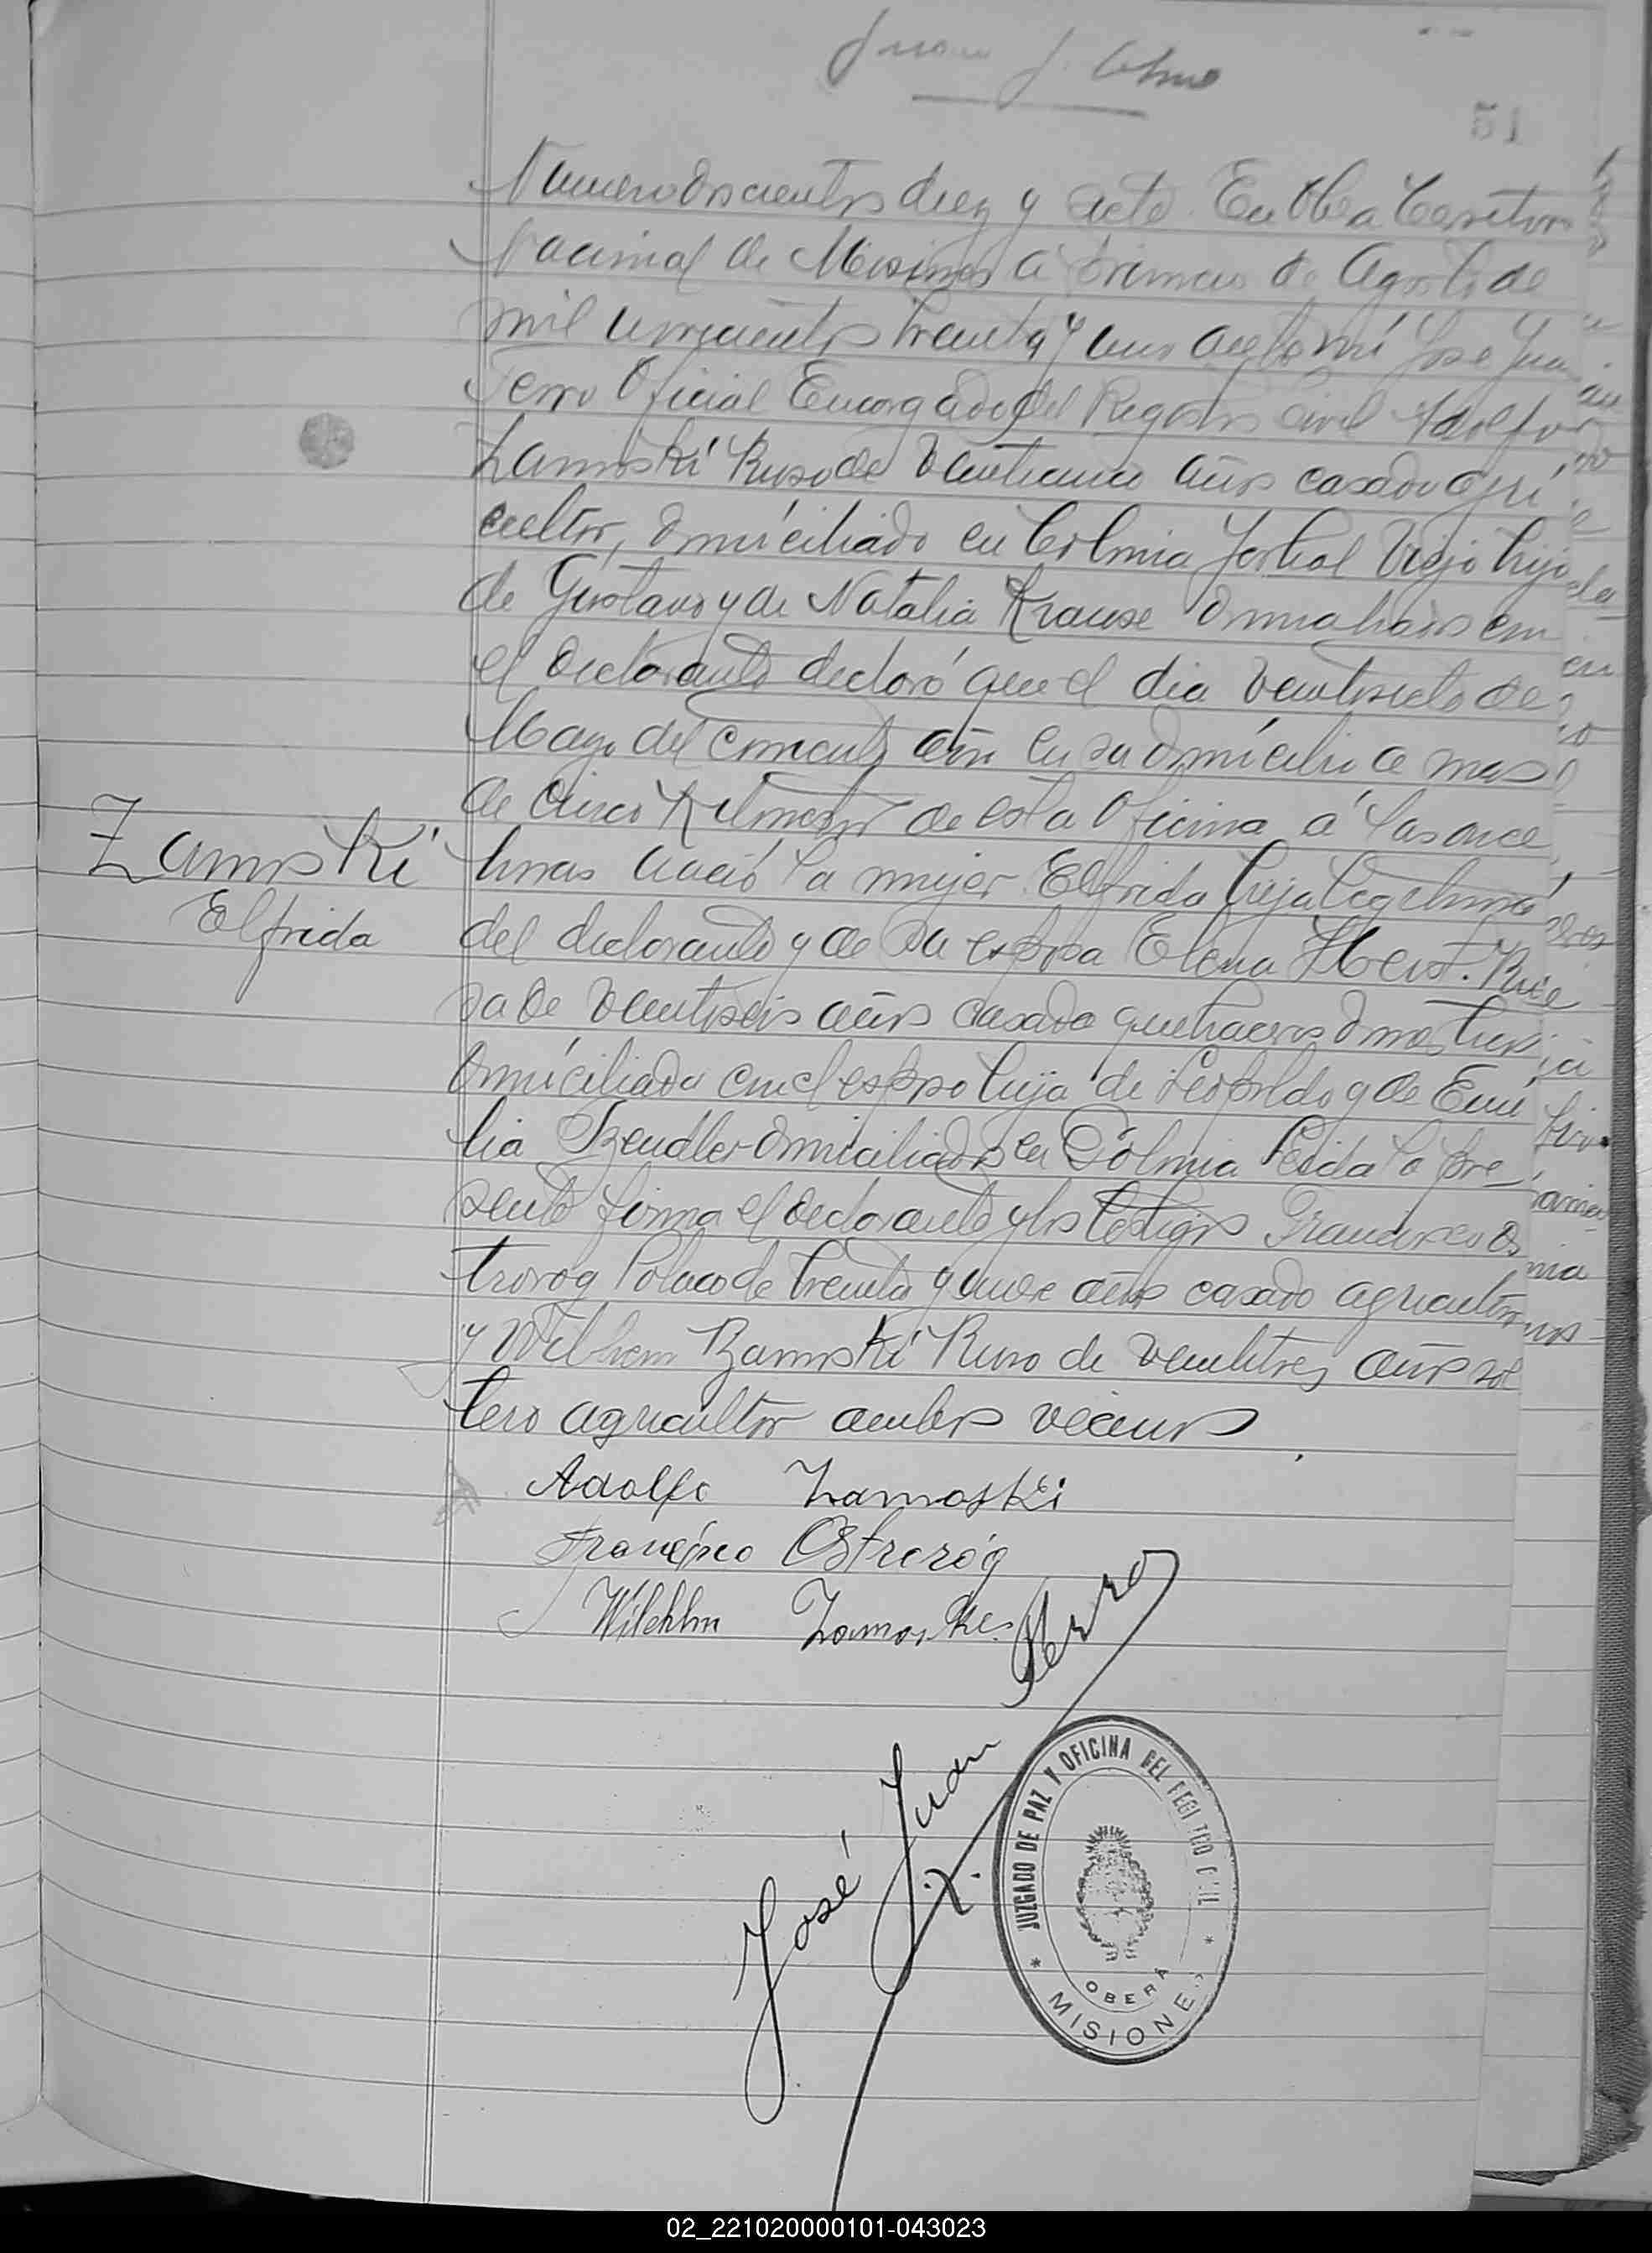 51
Numero doscientos diez y siete. En Oberá Territorio
Nacional de Misiones a primero de Agosto de
mil novecientos treinta y uno ante mí José Juan
Perro Oficial Encargado del Registro Civil Adolfo
Zamoski Ruso de años casado agri
cultor, domiciliado en Colonia Yerbal Viejo hijo
de Gustavo y de Natalia Krause domiciliados con
el declarante declaró que el dia veintisiete de
Mayo del corriente año en su domicilio a mas
de cinco kilometros de esta Oficina á las once
horas nació la mujer Elfrida hija legitima
Zamoski
Elfrida
del declarante y de su esposa Elena Ru
sa de veintiseis años casada quehaceres domesticos
domiciliada con el esposo hija de Leopoldo y de Emi
lia domiciliados en Colonia Leida la pre
sente firma el declarante y los testigos Francisco Os
trorog Polaco de treinta y nueve años casado agricultor
y Wilhem Zamoski Ruso de veintitres años sol
tero agricultor ambos vecinos
Adolfo Zamoski
Francisco Ostroróg
Wilehlm Zamoski
José Juan Perro
JUZGADO DE PAZ Y OFICINA DEL REGISTRO CIVIL
OBERÁ
* MISIONES *
02_221020000101-043023